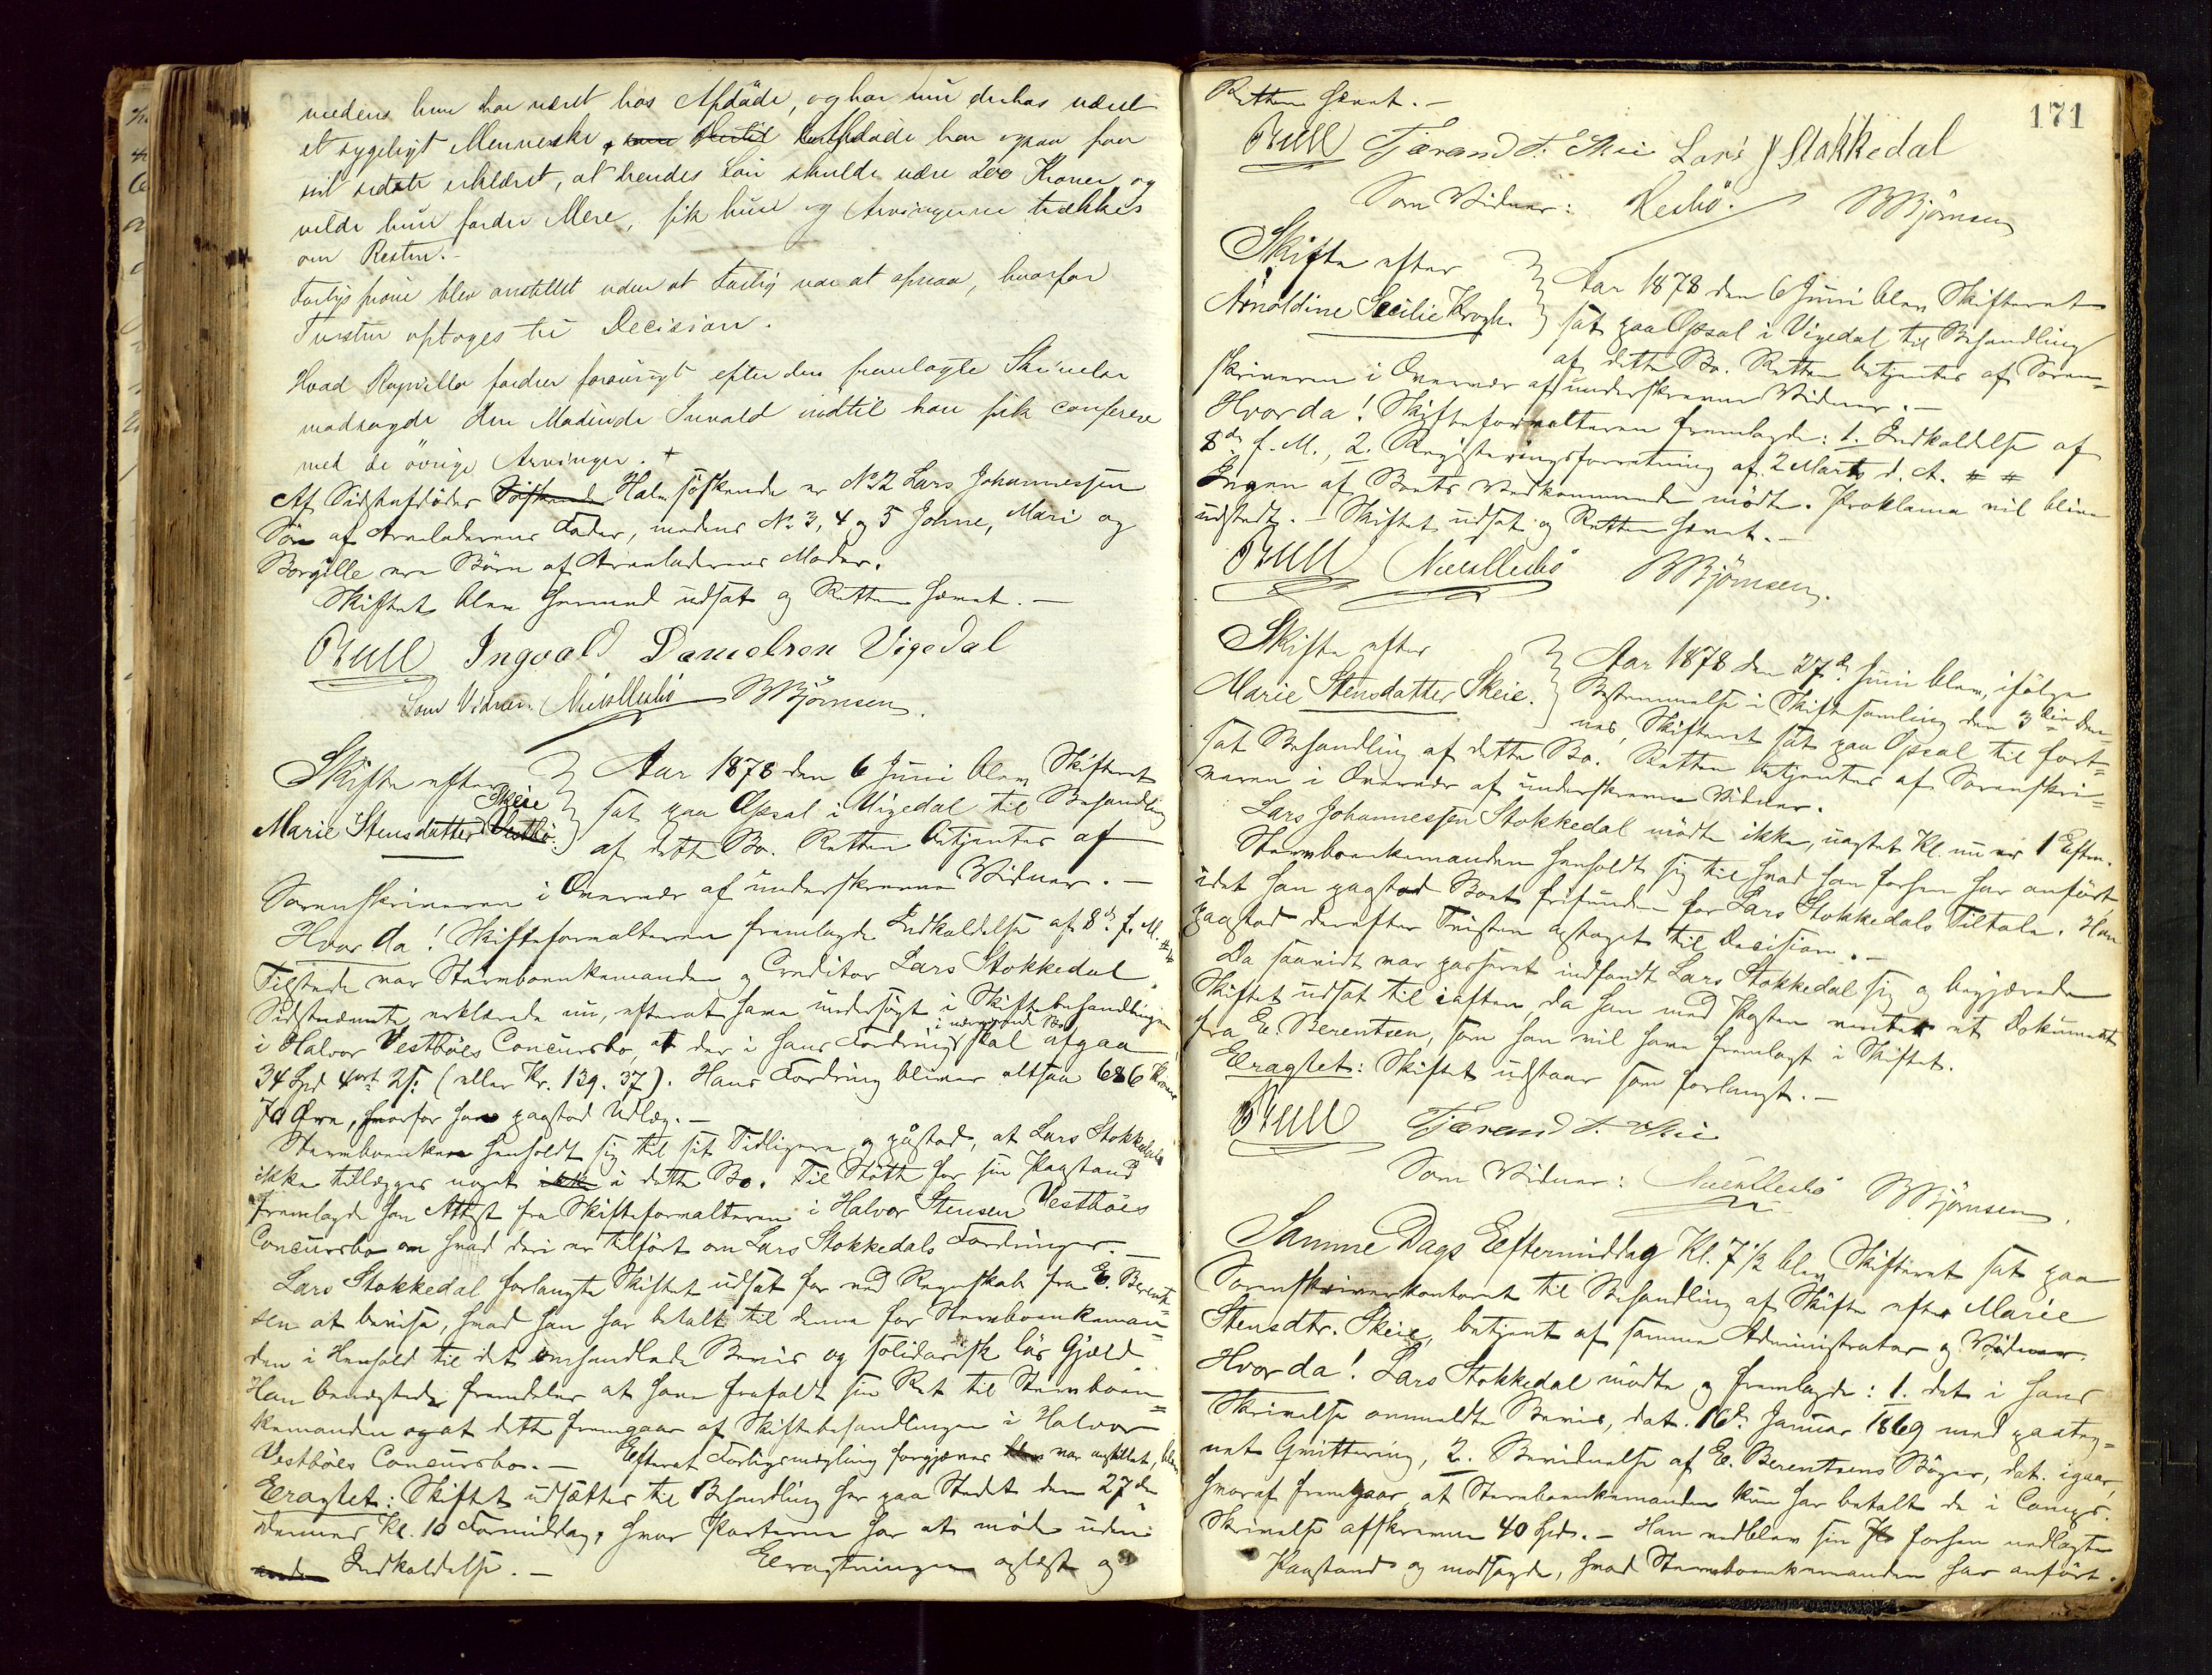 medens hun har været hos Afdøde, og har nu derhos været
et sygeligt Menneske, Afdøde har ogsaa paa
sit sidste erklæret, at hendes Løn skulde være 200 Kroner og
vilde hun fordre Mere, fik hun og Arvingerne trækkes
om Resten.-
Forligsprøve blev anstillet uden at Forlig var at opnaa, hvorfor
Tvisten optoges til Decision.
Hvad Ragnilla fordrer forøvrigt efter den fremlagte Skrivelse
modsagde den Mødende Invald indtil han fik conferere
med de øvrige Arvinger. +
Af Sidstafdødes Søskende Halvsøskende er No 2 Lars Johannessen
Søn af Arveladerens Fader, medens No. 3, 4 og 5 Johne, Mari og
Borgille ere Børn af Arveladerens Moder.
Skiftet blev hermed udsat og Retten hævet. -
Bull Ingvald Danielsen Vigedal
Som Vidner. BBjørnsen.
Skifte efter
Marie Stensdatter Vestbø Skeie
Aar 1878 den 6 Juni blev Skifteret
sat paa Opsal i Vigedal til Behandling
af dette Bo. Retten betjentes af
Sorenskriveren i Overvær af underskrevne Vidner. -
Hvor da! Skifteforvalteren fremlagde Indkaldelse af 8de f. M. ##
Tilstede var Stervboenkemanden og Creditor Lars Stokkedal.
Sidstnævnte erklærede nu, efterat have undersøgt i Skiftebehandlingen
i Halvor Vestbøes Concursbo, at der i hans Fordring i nærværende Bo skal afgaa
34 Spd 4 ort 2 s: (eller Kr. 139. 37). Hans Fordring bliver altsaa 686 Kroner
70 Øre, hvorfor han paastod Udlæg. -
Stervboenkem henholdt sig til sit Tidligere og påstod, at Lars Stokkedal
ikke tillægges noget ikke i dette Bo. Til Støtte for sin Paastand
fremlagde han Attest fra Skifteforvalteren i Halvor Stensen Vestbøes
Concursbo om hvad deri er tilført om Lars Stokkedals Fordringer. -
Lars Stokkedal forlangte Skiftet udsat for ved Regnskab fra E. Berent=
sen at bevise, hvad han har betalt til denne for Stervboenkeman=
den i Henhold til det omhandlede Bevis og solidarisk løs Gjæld.
Han benægtede fremdeles at have frafaldt sin Ret til Stervboen=
kemanden og at dette fremgaar af Skiftebehandlingen i Halvor
Vestbøes Concursbo. - Efterat Forligsmægling forgjæves blev var anstillet, blev
Eragtet: Skiftet udsættes til Behandling her paa Stedet den 27de
dennes Kl. 10 Formiddag, hvor Parterne har at møde uden
Indkaldelse. - Eragtningen oplæst og
171
Retten hævet. -
Bull Tjærand T. Skeie Lars J Stokkedal
Som Vidner: BBjørnsen
Skifte efter
Arnoldine Secilie Krogh.
Aar 1878 den 6 Juni blev Skifteret
sat paa Opsal i Vigedal til Behandling
af dette Bo. Retten betjentes af Soren=
skriveren i Overvær af underskrevne Vidner. -
Hvor da! Skifteforvalteren fremlagde: 1. Indkaldelse af
8de f. M., 2. Registreringsforretning af 2 Marts d. A. # #
Ingen af Boets Vedkommende mødte. Proklama vil blive
udstedt. - Skiftet udsat og Retten hævet. -
Bull BBjørnsen.
Skifte efter
Marie Stensdatter Skeie.
Aar 1878 den 27de Juni blev, ifølge
Bestemmelse i Skiftesamling den 3die den=
nes, Skifteret sat paa Opsal til fort=
sat Behandling af dette Bo. Retten betjentes af Sorenskri=
veren i Overvær af underskrevne Vidner.
Lars Johannessen Stokkedal mødte ikke, uagtet Kl. nu er 1 Efterm.
Stervboenkemanden henholdt sig til hvad han forhen har anført
idet han paastod Boet frifunden for Lars Stokkedals Tiltale. Han
paastod derefter Tvisten optaget til Decision. -
Da saavidt var passeret indfandt Lars Stokkedal sig og begjærede
Skiftet udsat til iaften, da han med Posten venter et Dokument
fra E. Berentsen, som han vil have fremlagt i Skiftet.
Eragtet: Skiftet udstaar som forlangt. -
Bull Tjærand T. Skeie
Som Vidner: BBjørnsen.
Samme Dags Eftermiddag Kl. 7 1/2 blev Skifteret sat paa
Sorenskriverkontoret til Behandling af Skifte efter Marie
Stensdtr. Skeie, betjent af samme Administrator og Vidner.
Hvor da! Lars Stokkedal mødte og fremlagde: 1. det i hans
Skrivelse anmeldte Bevis, dat. 16de Januar 1869 med paateg=
net Qvittering, 2. Bevidnelse af E. Berentsens Bøger, dat. igaar,
hvoraf fremgaar, at Stervboenkemanden kun har betalt de i Comprs.
Skrivelse afskrevne 40 Spd. - Han vedblev sin forhen nedlagte
Paastand og modsagde, hvad Stervboenkemanden har anført.